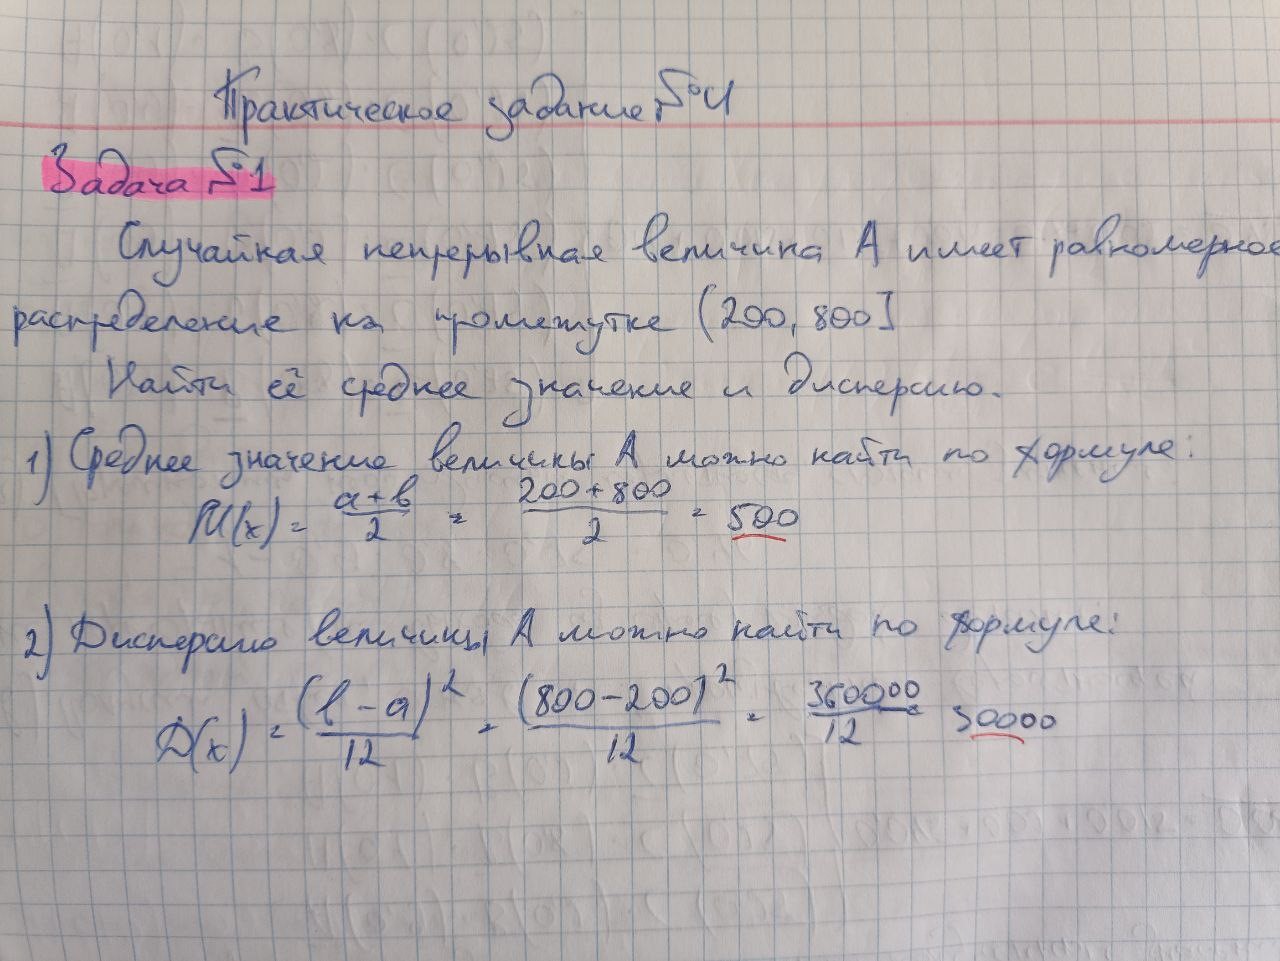 Практическое задание №4
Задача №1
Случайная непрерывная величина А имеет равномерное
распределение на промежутке (200, 800]
Найти её среднее значение и дисперсию.
1) Среднее значение величины А можно найти по формуле:
M(x) = (a+b)/2 = (200+800)/2 = 500
2) Дисперсию величины А можно найти по формуле:
D(x) = (b-a)²/12 = (800-200)²/12 = 360000/12 = 30000